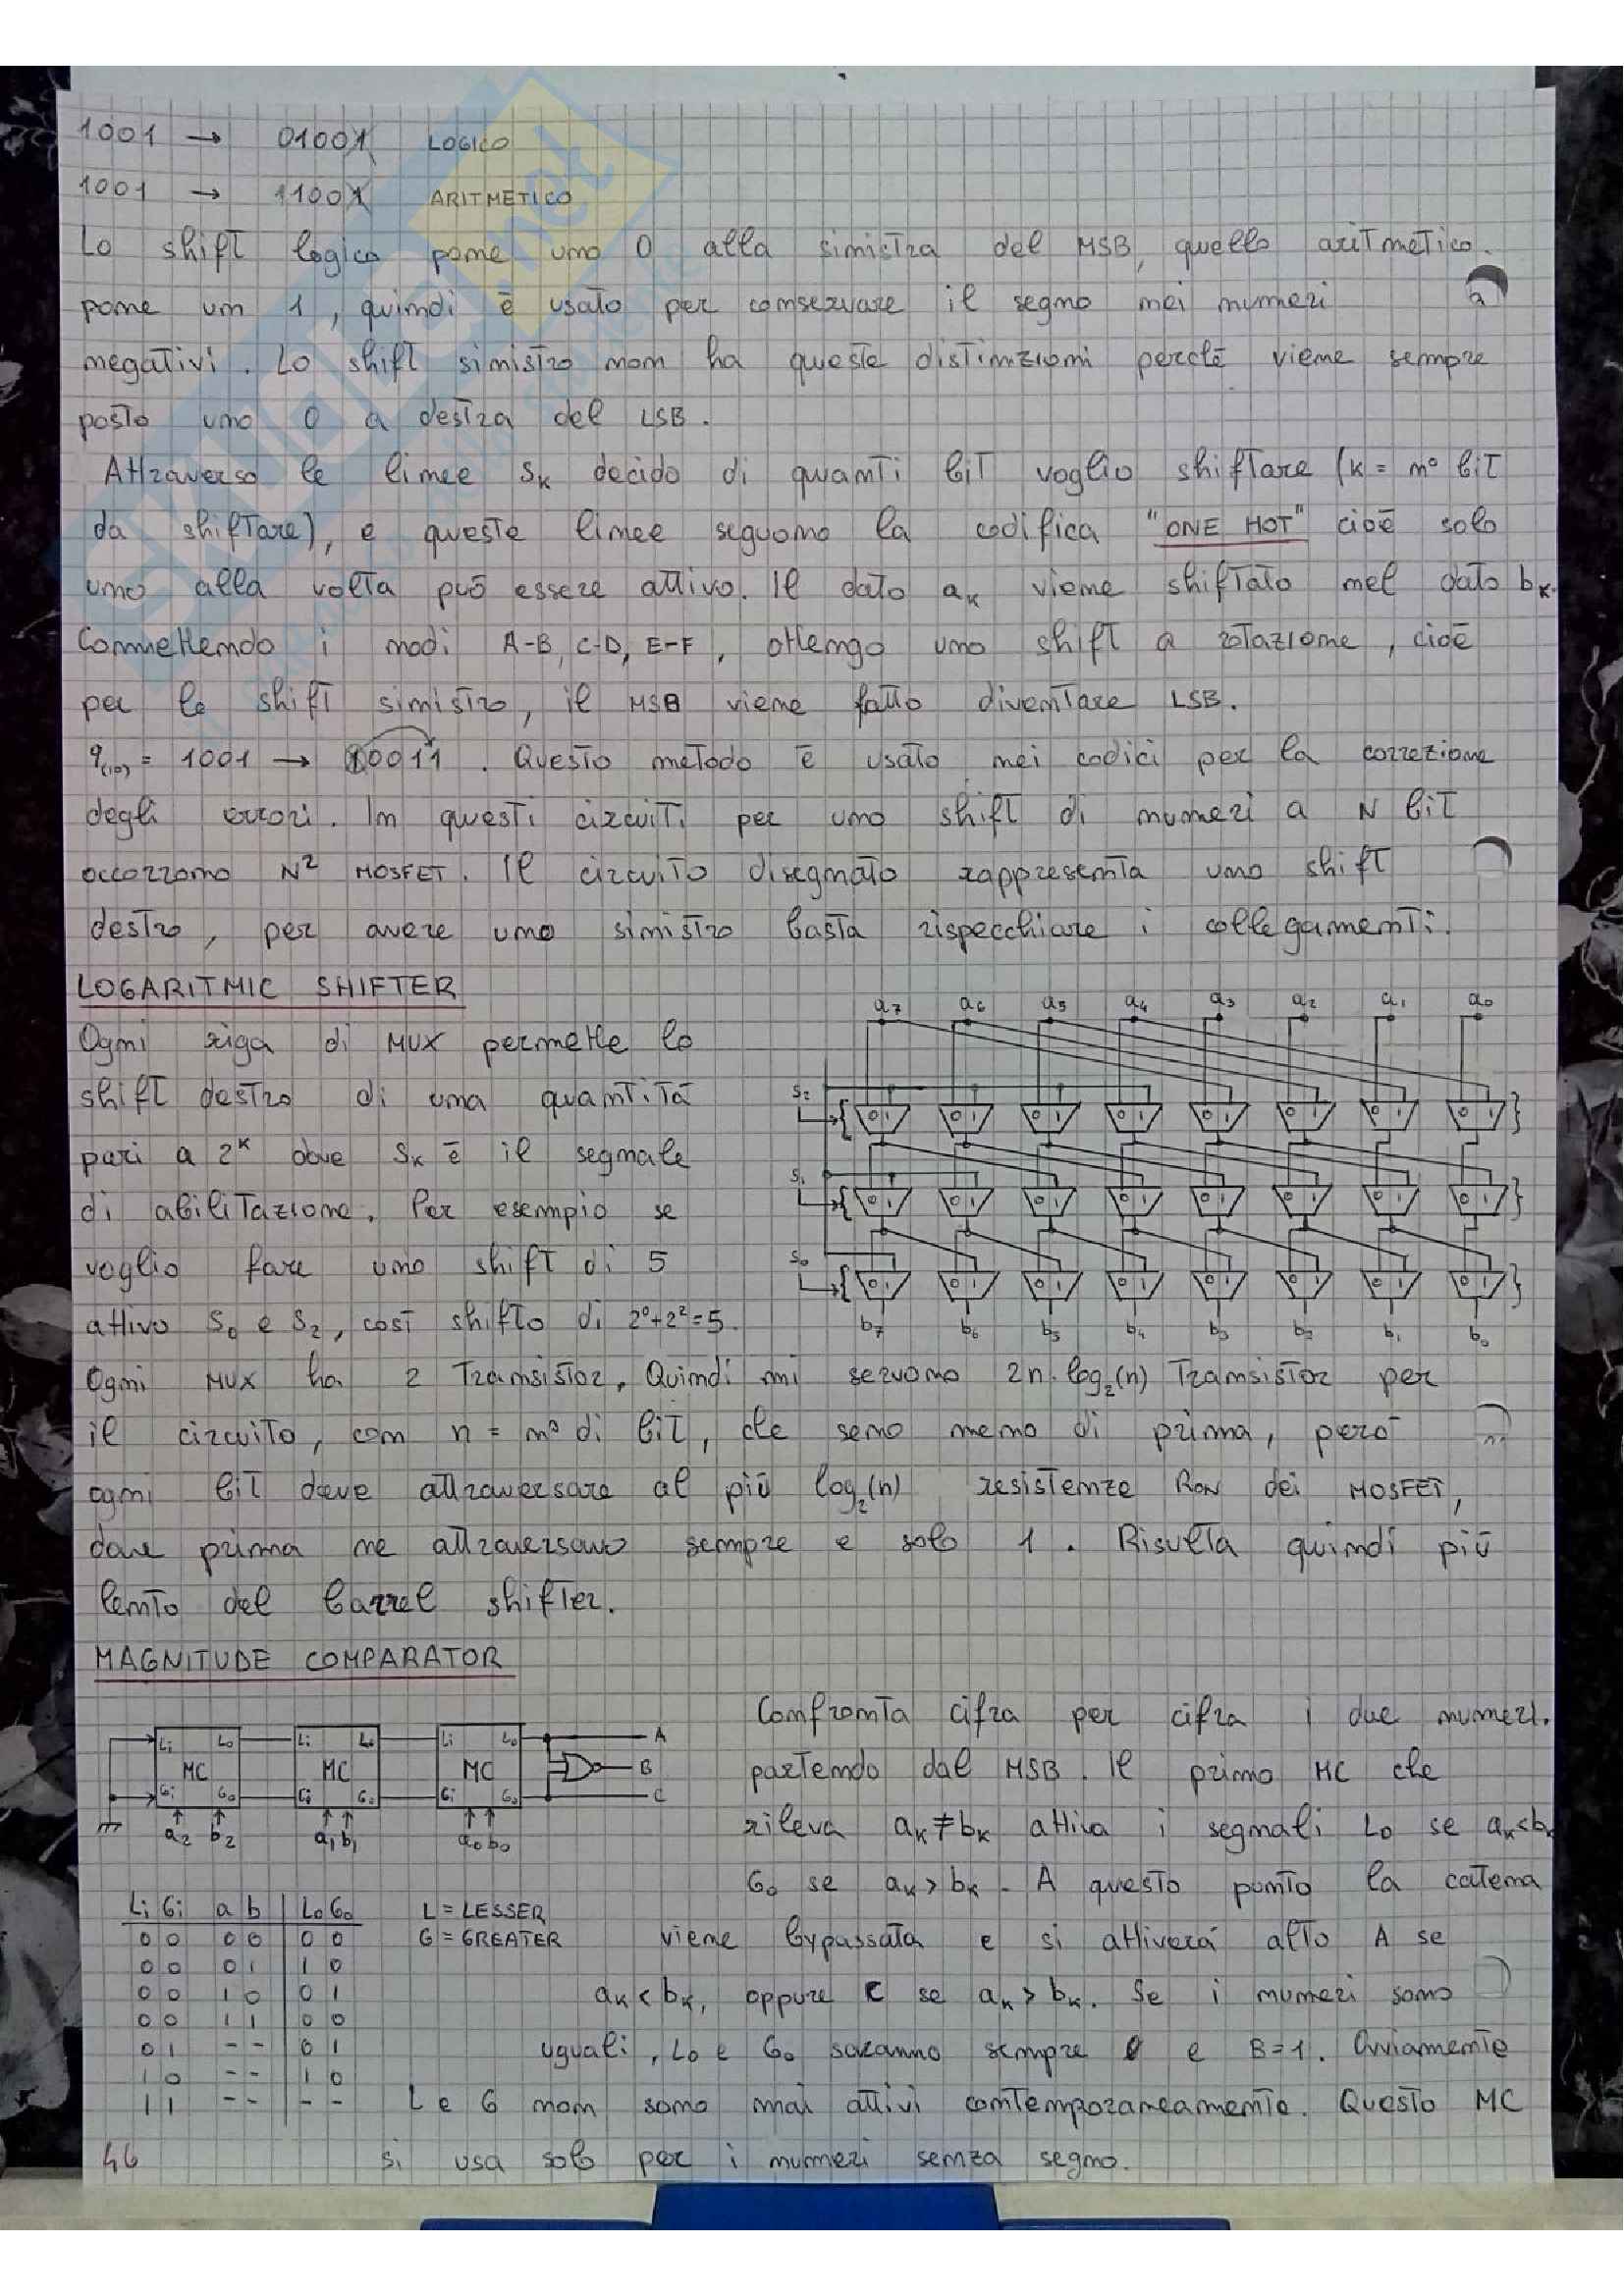 1001 → 01001 LOGICO
1001 → 11001 ARITMETICO
Lo shift logico pone uno 0 alla sinistra del MSB, quello aritmetico
pone un 1, quindi è usato per conservare il segno nei numeri
negativi. Lo shift sinistro non ha queste distinzioni perché viene sempre
posto uno 0 a destra del LSB.
Attraverso le linee Sk decido di quanti bit voglio shiftare (k = n° bit
da shiftare), e queste linee seguono la codifica "ONE HOT" cioè solo
uno alla volta può essere attivo. Il dato ak viene shiftato nel dato bk.
Connettendo i nodi A-B, C-D, E-F, ottengo uno shift a rotazione, cioè
per lo shift sinistro, il MSB viene fatto diventare LSB.
9(10) = 1001 → 10011. Questo metodo è usato nei codici per la correzione
degli errori. In questi circuiti per uno shift di numeri a N bit
occorrono N² MOSFET. Il circuito disegnato rappresenta uno shift
destro, per avere uno sinistro basta rispecchiare i collegamenti.
LOGARITMIC SHIFTER
Ogni riga di MUX permette lo
shift destro di una quantità
pari a 2^k dove Sk è il segnale
di abilitazione. Per esempio se
voglio fare uno shift di 5
attivo S0 e S2, così shifto di 2⁰+2²=5.
a7 a6 a5 a4 a3 a2 a1 a0
S2
0 1 0 1 0 1 0 1 0 1 0 1 0 1 0 1
S1
0 1 0 1 0 1 0 1 0 1 0 1 0 1 0 1
S0
0 1 0 1 0 1 0 1 0 1 0 1 0 1 0 1
b7 b6 b5 b4 b3 b2 b1 b0
Ogni MUX ha 2 transistor. Quindi mi servono 2n·log2(n) transistor per
il circuito, con n = n° di bit, che sono meno di prima, però
ogni bit deve attraversare al più log2(n) resistenze RON dei MOSFET,
dove prima ne attraversavo sempre e solo 1. Risulta quindi più
lento del barrel shifter.
MAGNITUDE COMPARATOR
Li Lo Li Lo Li Lo A
MC MC MC B
Gi Go Gi Go Gi Go C
a2 b2 a1 b1 a0 b0
Confronta cifra per cifra i due numeri.
partendo dal MSB. Il primo MC che
rileva ak≠bk attiva i segnali Lo se ak<bk
Go se ak>bk. A questo punto la catena
viene bypassata e si attiverà alto A se
ak<bk, oppure C se ak>bk. Se i numeri sono
uguali, Lo e Go saranno sempre 0 e B=1. Ovviamente
L e G non sono mai attivi contemporaneamente. Questo MC
si usa solo per i numeri senza segno.
Li Gi a b Lo Go
0 0 0 0 0 0
0 0 0 1 1 0
0 0 1 0 0 1
0 0 1 1 0 0
0 1 - - 0 1
1 0 - - 1 0
1 1 - - - -
L = LESSER
G = GREATER
46